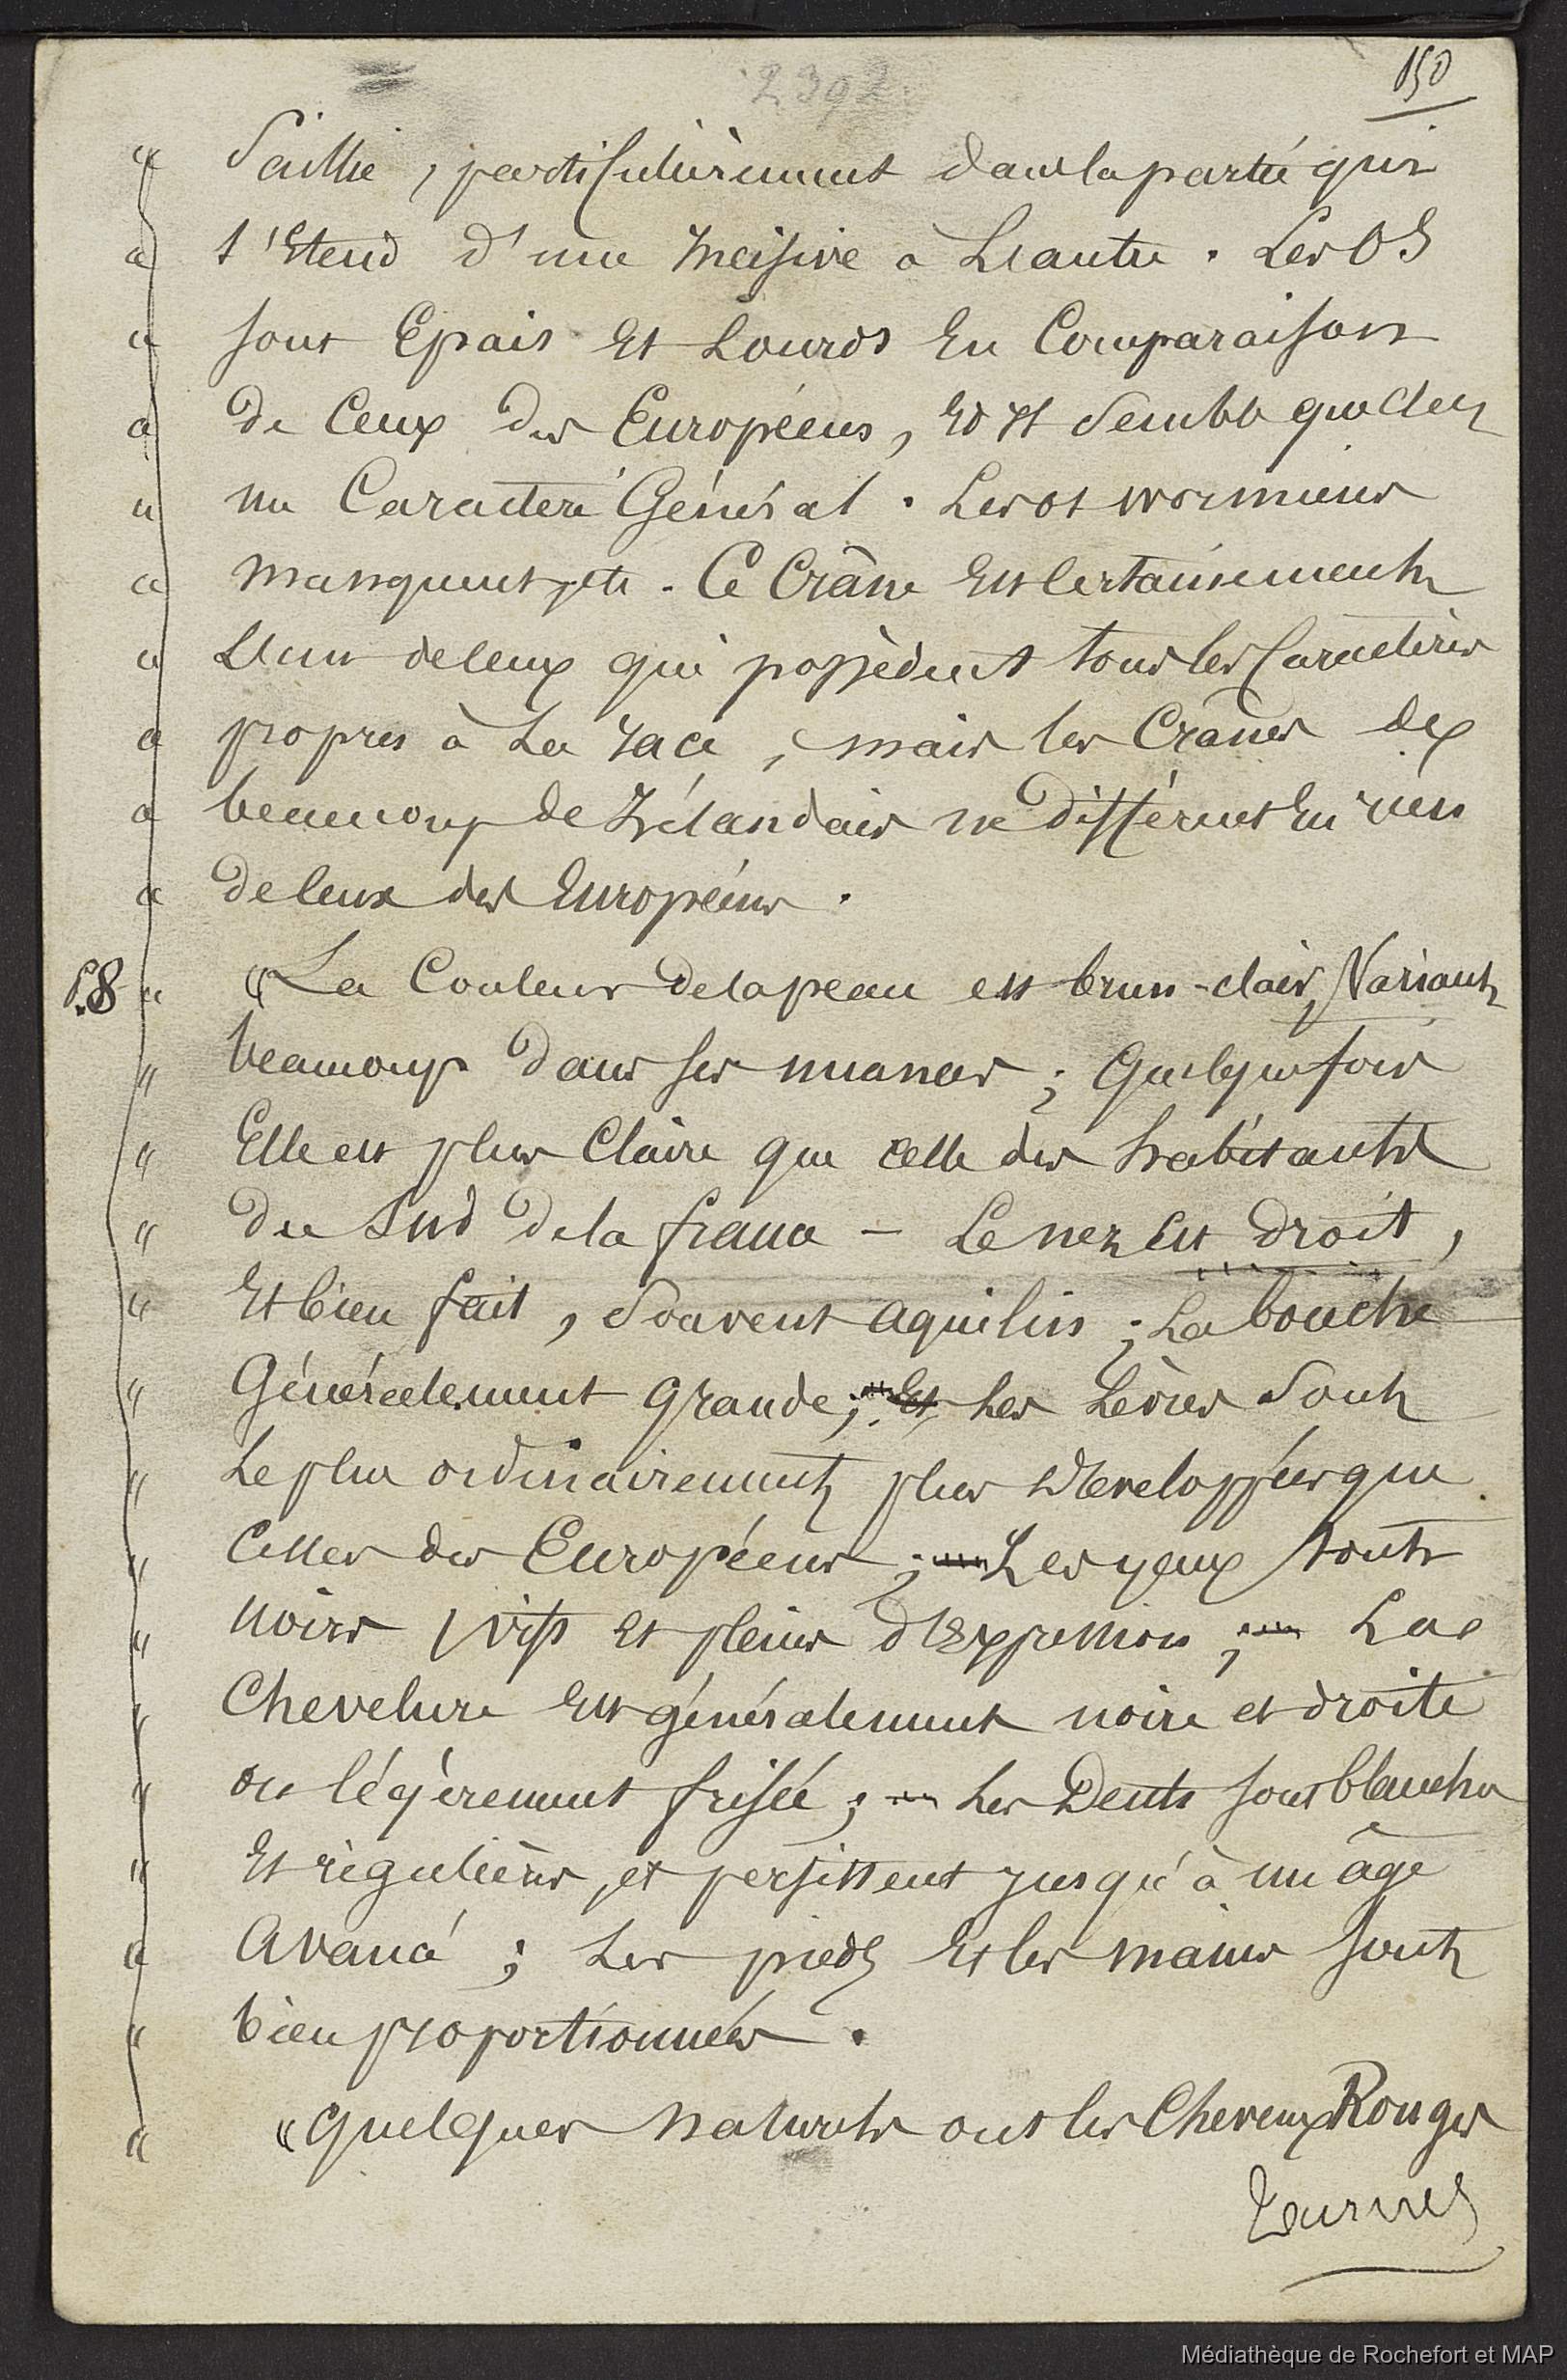 2392
150
« Saillie, particulièrement dans la partie qui
« s'Etend d'une Incisive à L'autre. Les OS
« sont Epais Et Lourds En Comparaison
« de Ceux des Européens, Et Il Semble que C'est
« un Caractère Général. Les os wormiens
« manquent, etc. Ce Crâne Est Certainement
« L'un de Ceux qui possèdent tous les Caractères
« propres à La race, mais les Crânes de
« beaucoup de Zélandais ne diffèrent En rien
« de Ceux des Européens.
P.8 « « La Couleur de la peau est brun-clair, Variant
« beaucoup dans ses nuances ; Quelquefois
« Elle est plus Claire que celle des habitants
« du Sud de la france – Le nez Est droit,
« Et bien fait, Souvent aquilin ; La bouche
« Généralement grande ; Et Les Lèvres Sont
« Le plus ordinairement plus Developpées que
« Celles des Européens ; Les yeux sont
« noirs, vifs Et pleins d'Expression ; La
« Chevelure Est généralement noire et droite
« ou légèrement frisée ; Les Dents sont blanches
« Et règulières, et persistent jusqu'à un âge
« Avancé ; Les pieds Et les mains sont
« bien proportionnés.
« « Quelques naturels ont les Cheveux Rouges
Tournez
Médiathèque de Rochefort et MAP